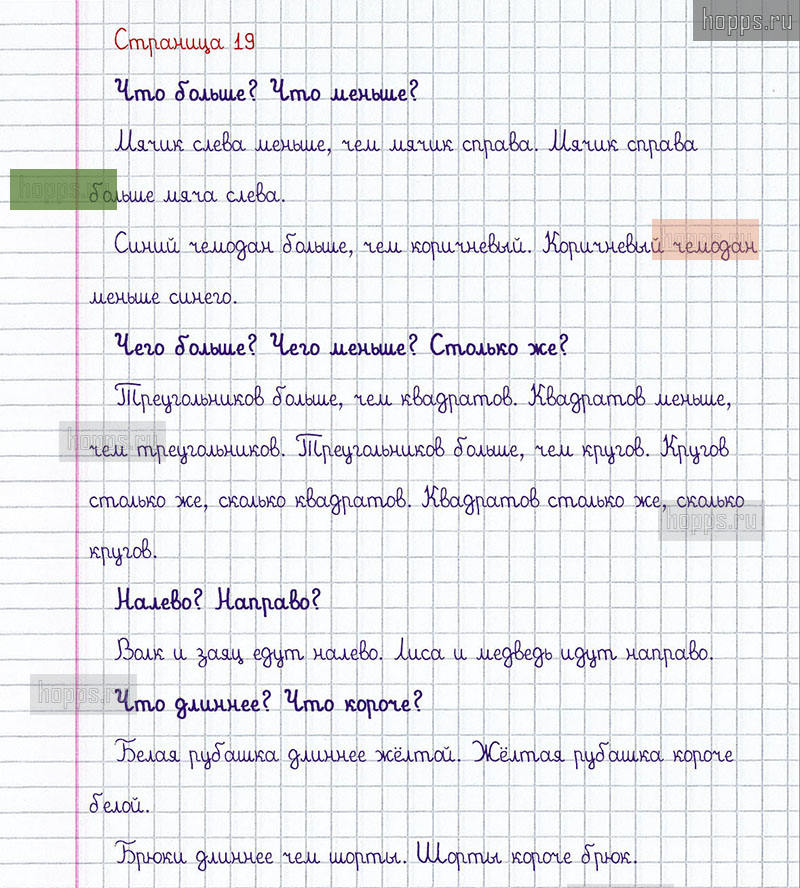 hopps.ru
Страница 19
Что больше? Что меньше?
Мячик слева меньше, чем мячик справа. Мячик справа
больше мяча слева.
Синий чемодан больше, чем коричневый. Коричневый чемодан
меньше синего.
Чего больше? Чего меньше? Столько же?
Треугольников больше, чем квадратов. Квадратов меньше,
чем треугольников. Треугольников больше, чем кругов. Кругов
столько же, сколько квадратов. Квадратов столько же, сколько
hopps.ru
кругов.
Налево? Направо?
Волк и заяц едут налево. Лиса и медведь идут направо.
hopps.ru
Что длиннее? Что короче?
Белая рубашка длиннее жёлтой. Жёлтая рубашка короче
белой.
Брюки длиннее чем шорты. Шорты короче брюк.